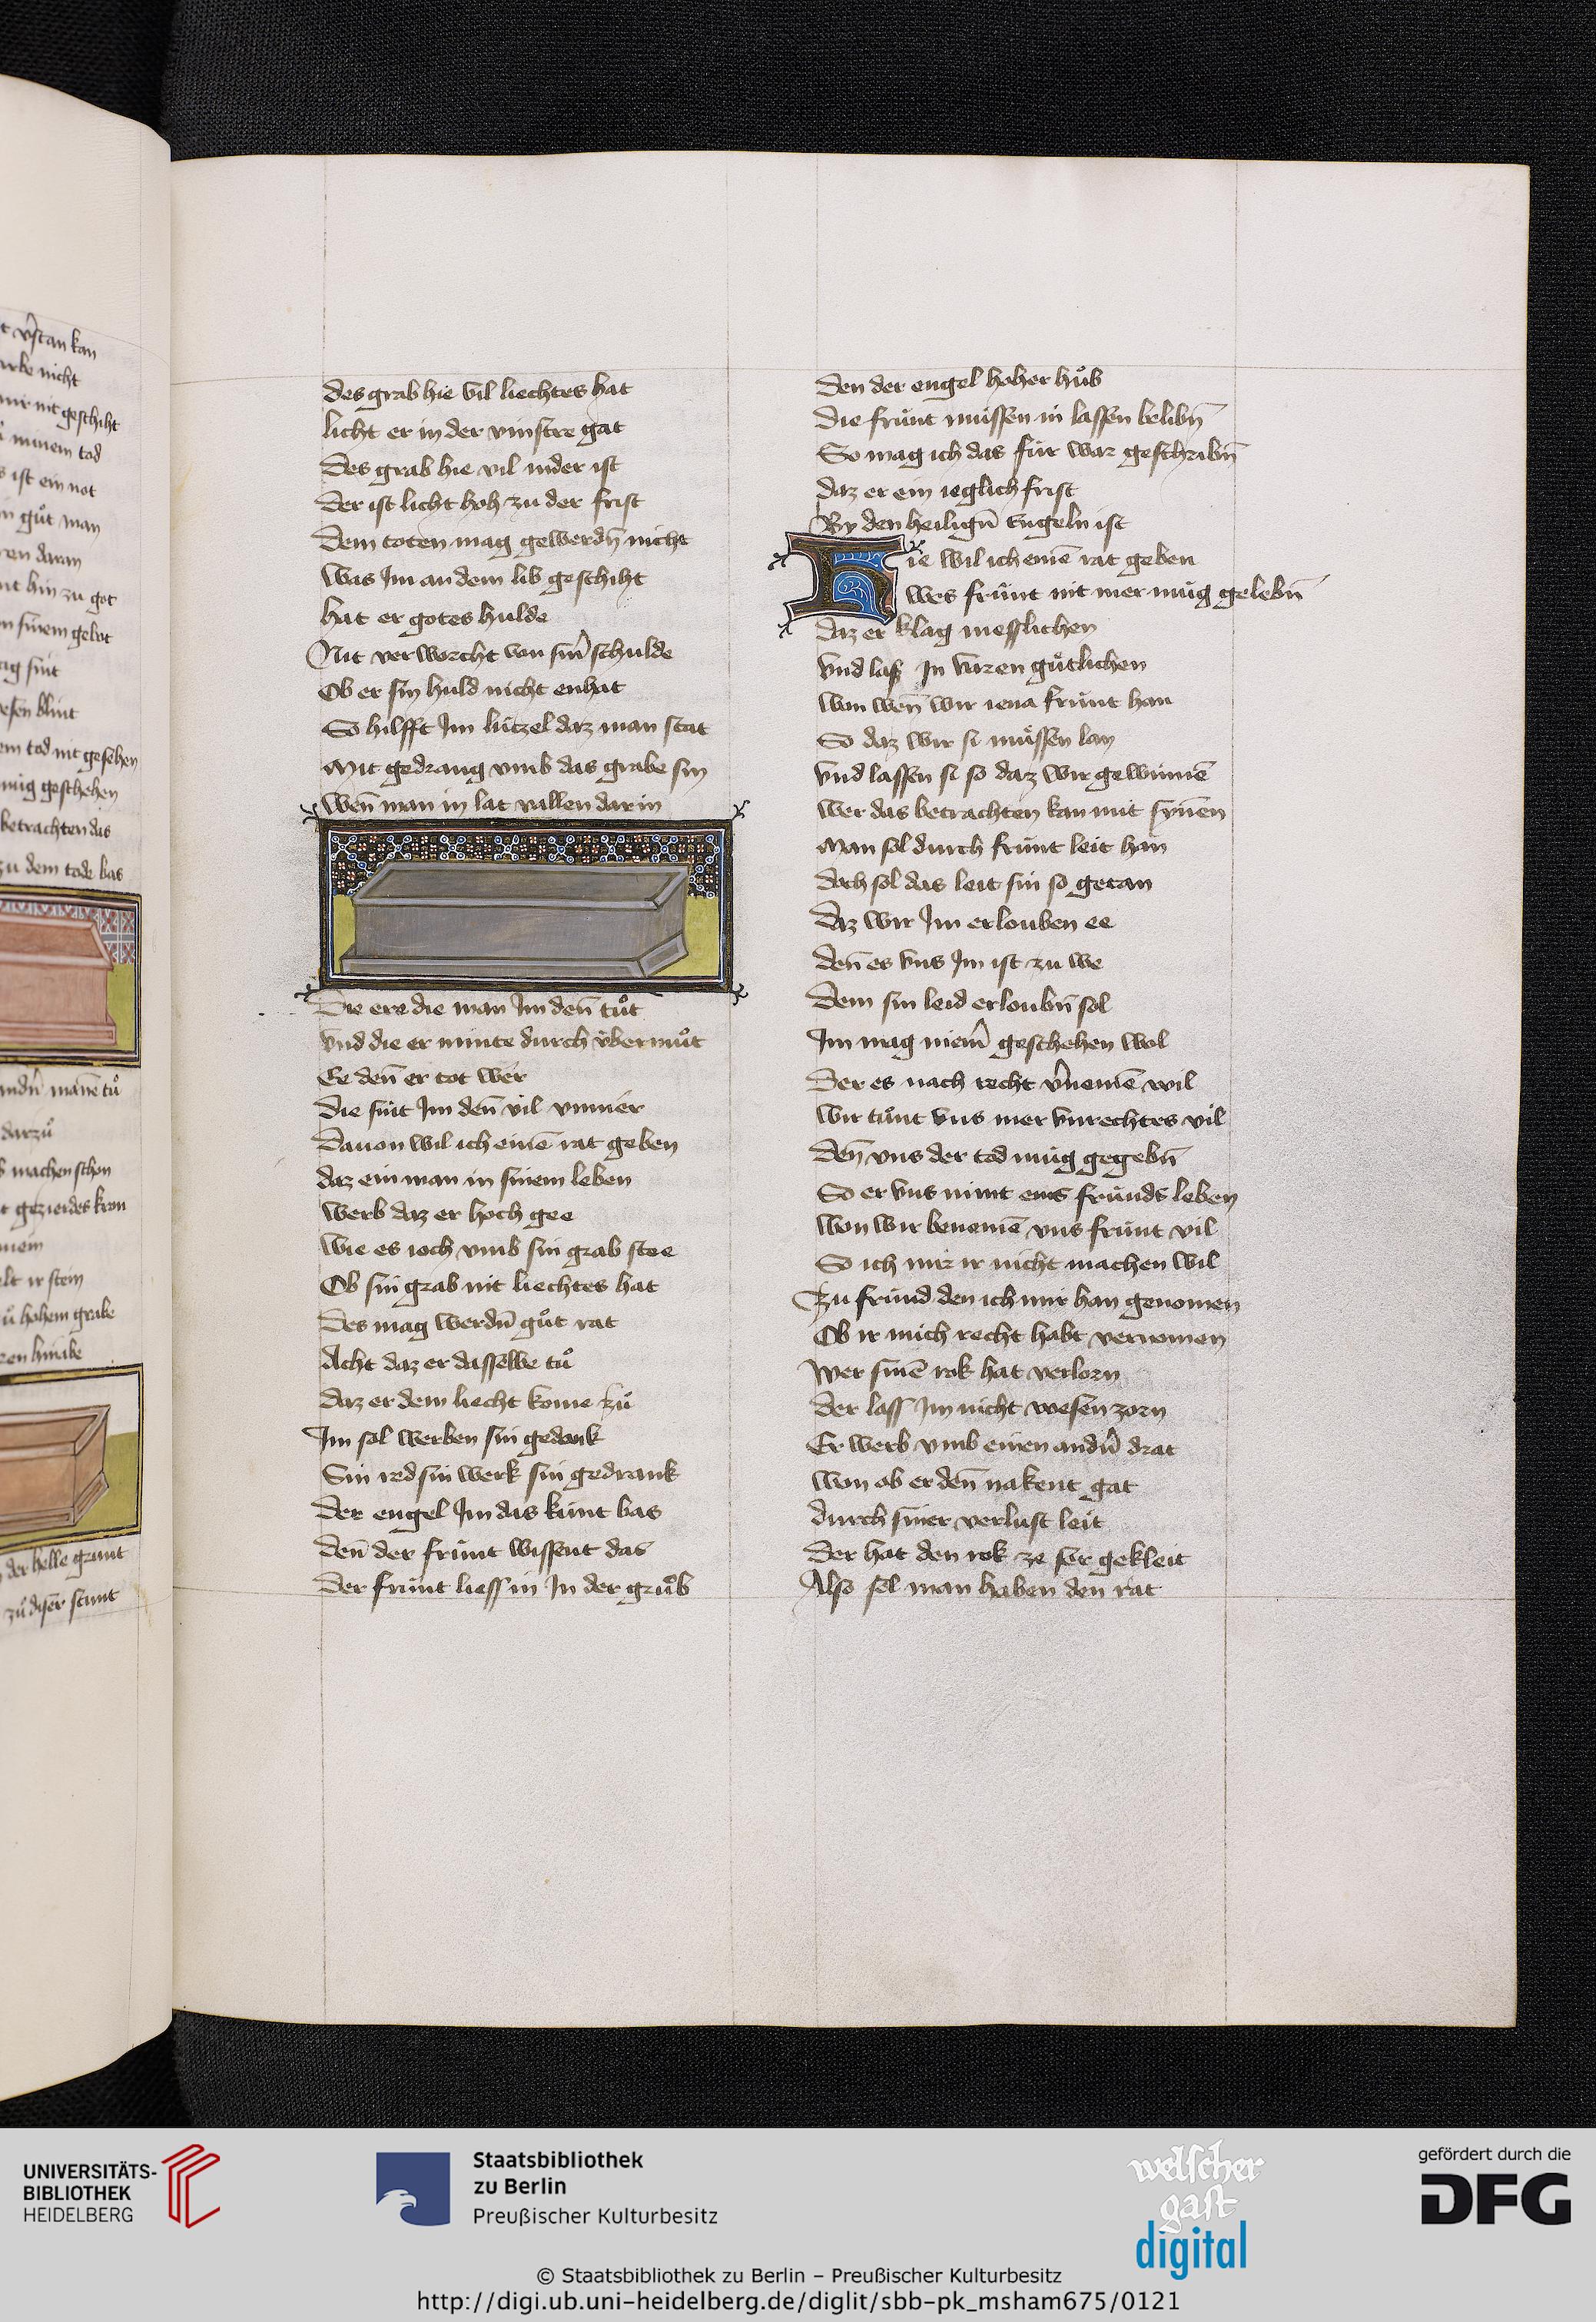 t v̂stan kan
urbe nicht
mir nit geschiht
minem tod
s ist ein not
in gůt man
ren daran
nt hin zu got
n sinem gebot
ag sint
esen blint
em tod nit gesehen
mùg geschehen
betrachten das
zu dem tode bas
andn̂ manē tů
darzů
machen schon
t gezierdes kron
mein
elt ir stein
ů hohem grabe
ren hinabe
der helle grunt
zů diser stunt
des grab hie vil liechtes hat
licht er in der vinstre gat
Des grab hie vil nider ist
Der ist licht hoh zu der frist
Dem toten mag gewerdn̄ nicht
Was Im an dem lib geschiht
hat er gotes hulde
Nit verworcht von sinr̂ schulde
Ob er sin huld nicht enhat
So hilfft Im lùtzel daz man stat
Mit gedrang vmb das grabe sin
Wen̄ man in lat vallen dar in
Die ere die man Im den̄ tůt
Vnd die er minte durch v̈bermůt
Ee den̄ er tot wer
Die sint Im den̄ vil vnmer
Dauon wil ich einē rat geben
daz ein man in sinem leben
Werb daz er hoch gee
Wie es ioch vmb sin grab stee
Ob sin grab nit liechtes hat
Des mag werdn̄ gůt rat
Acht daz er dasselbe tů
Daz er dem liecht kome zů
Im sol werben sin gedank
Sin red sin werk sin gedrank
Der engel Im das kùnt bas
Den̄ der frùnt wissent das
Der frùnt liess in In der grůb
Den der engel hoher hůb
Die frùnt mùssen in lassen belibn̄
So mag ich das fùr war geschribn̄
Daz er ein ieglich frist
By den heilign̄ Engeln ist
Hie wil ich einē rat geben
wes frùnt nit mer mùg gelebn̄
Daz er klag messlichen
Vnd lass In varen gůtlichen
Won wen̄ wir iena frùnt han
So daz wir si mùssen lan
Vnd lassen si so daz wir gewinnē
Wer das betrachten kan mit synēn
Man sol durch frùnt leit han
Doch sol das leit sin so getan
Daz wir Im erlouben ee
Den̄ es vns Im ist zu we
Dem sin leid erloubn̄ sol
Im mag niem̂ geschehen wol
Der es nach recht v̂nemē wil
Wir tůnt vns mer vnrechtes vil
Den̄ vns der tod mùg gegebn̄
So er vns nimt eins frùnds leben
Won wir benemē vns frùnt vil
So ich mir ir nicht machen wil
Zu frùnd den ich mir han genomen
Ob ir mich recht habt vernomen
Wer sinē rok hat verlorn
Der lass Im nicht wesen zorn
Er werb vmb einen andn̂ drat
Won ob er den̄ nakent gat
Durch siner verlust leit
Der hat den rok ze ser gekleit
Also sol man haben den rat
UNIVERSITÄTS-
BIBLIOTHEK
HEIDELBERG
Staatsbibliothek
zu Berlin
Preußischer Kulturbesitz
welscher
gast
digital
gefördert durch die
DFG
© Staatsbibliothek zu Berlin – Preußischer Kulturbesitz
http://digi.ub.uni-heidelberg.de/diglit/sbb-pk_msham675/0121